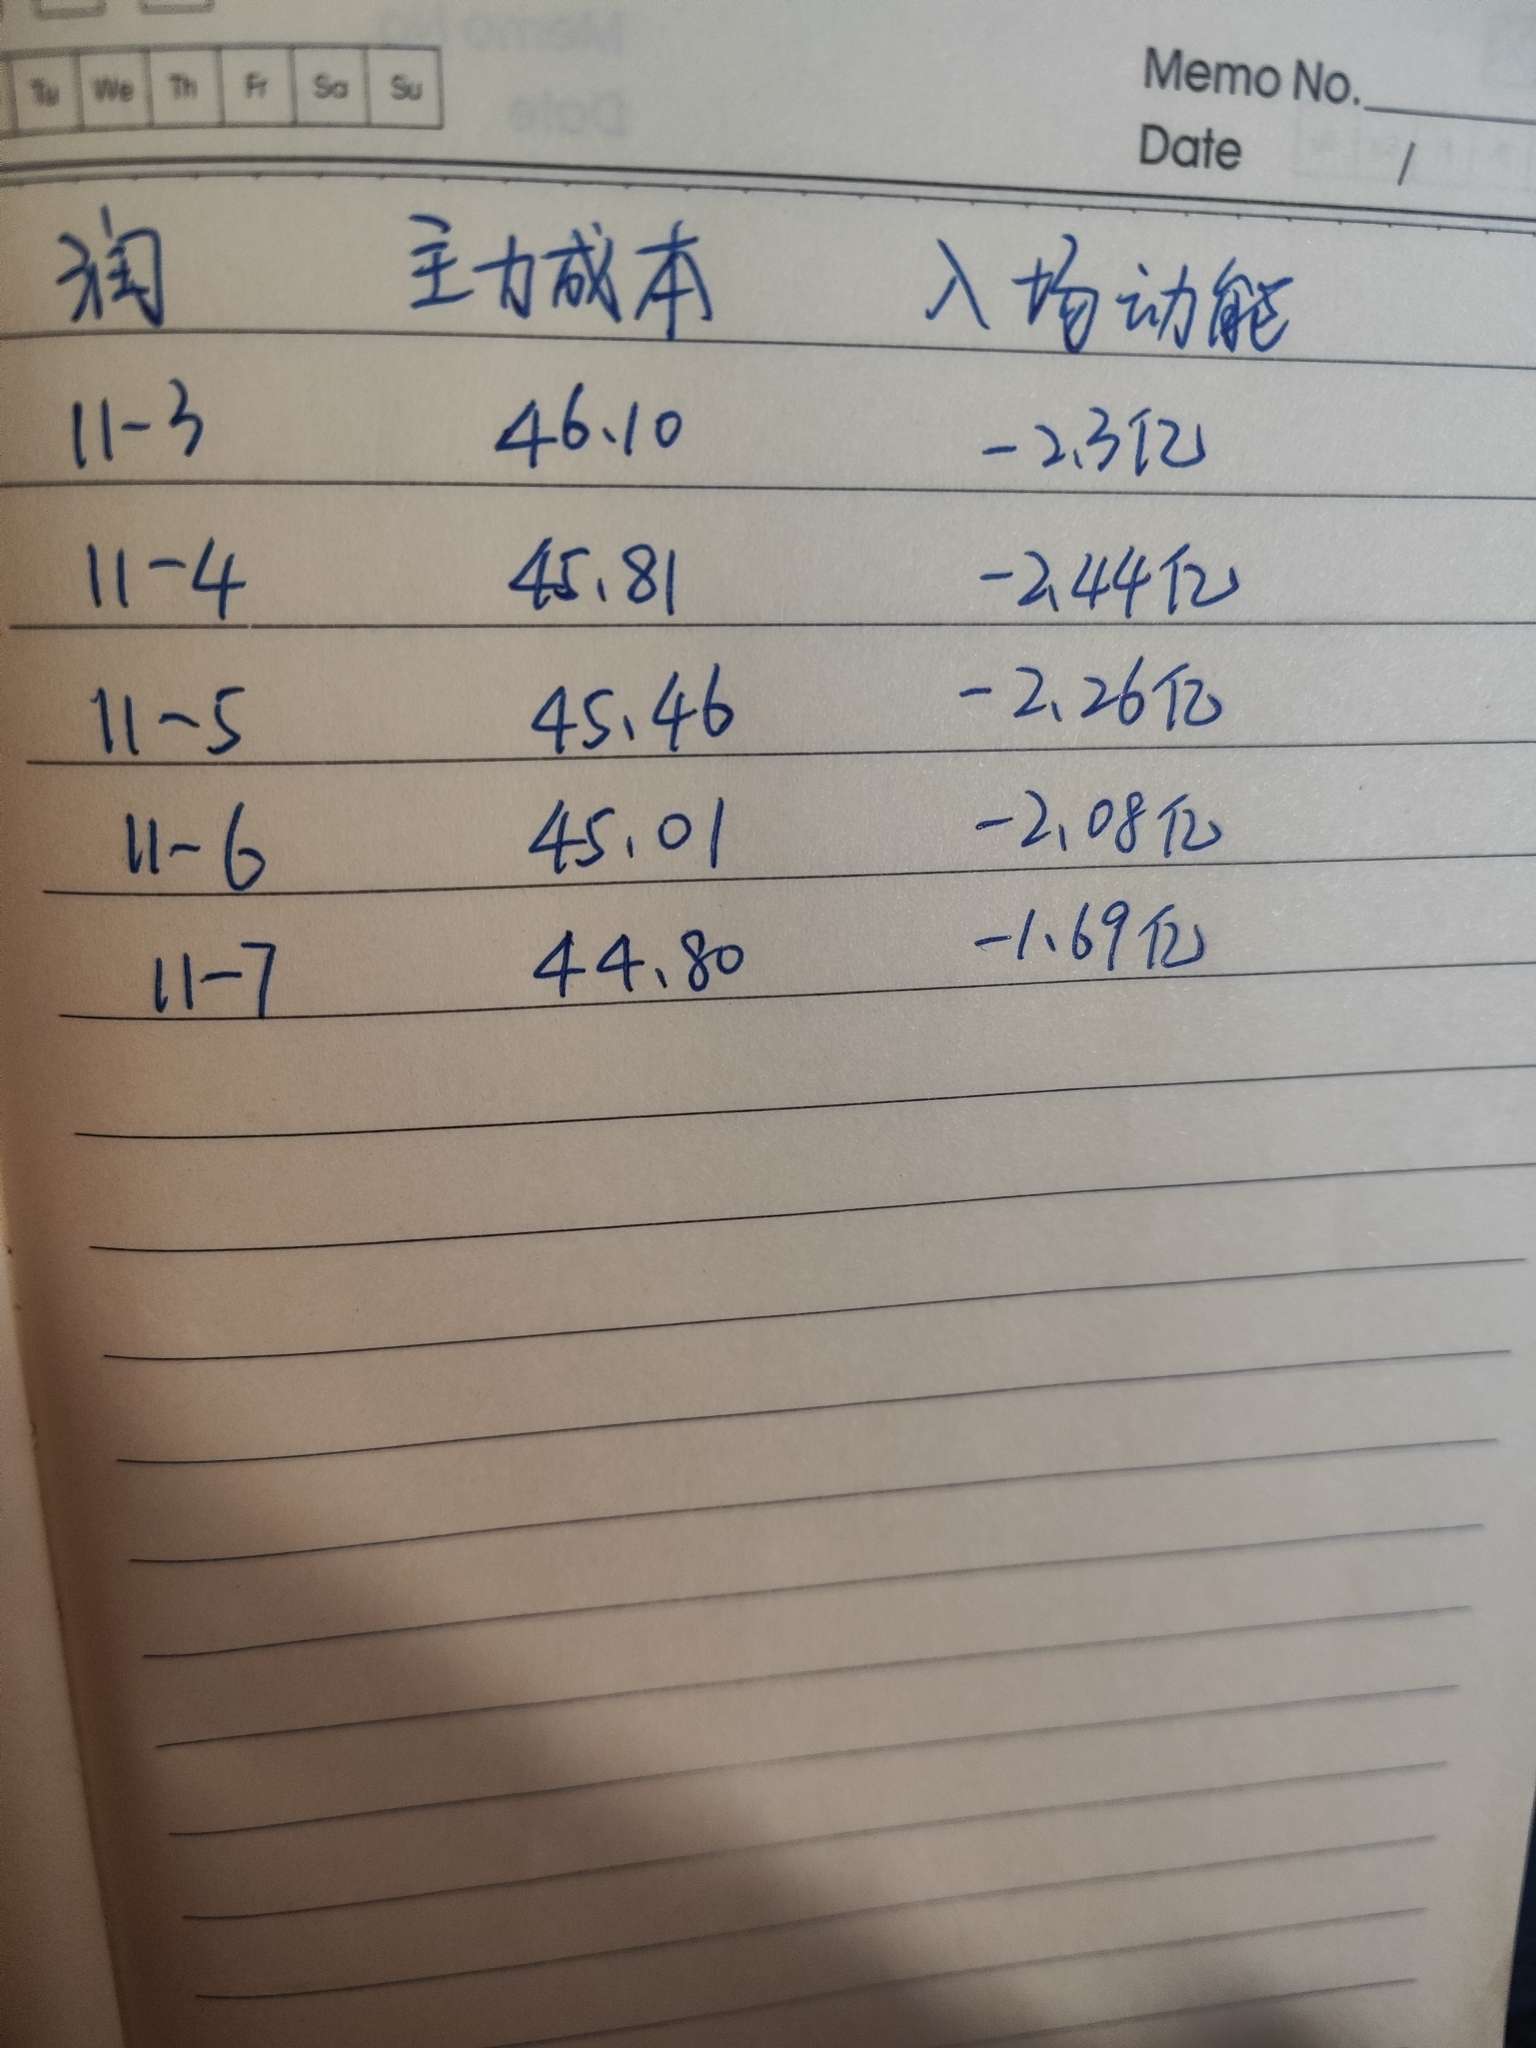 Tu We Th Fr Sa Su
Memo No.
Date /
润 主力成本 入场动能
11-3 46.10 -2.3亿
11-4 45.81 -2.44亿
11-5 45.46 -2.26亿
11-6 45.01 -2.08亿
11-7 44.80 -1.69亿